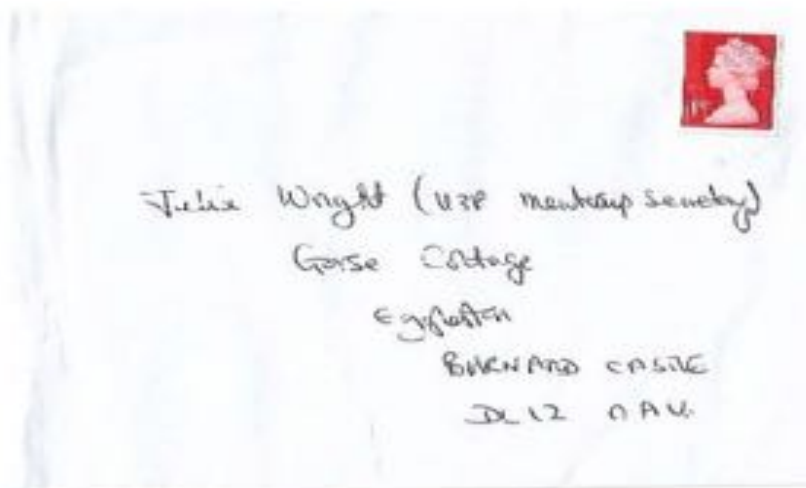 1ST
Julie Wright (U3P Secretary)
Gorse Cottage
Eggleston
BARNARD CASTLE
DL12 0AU